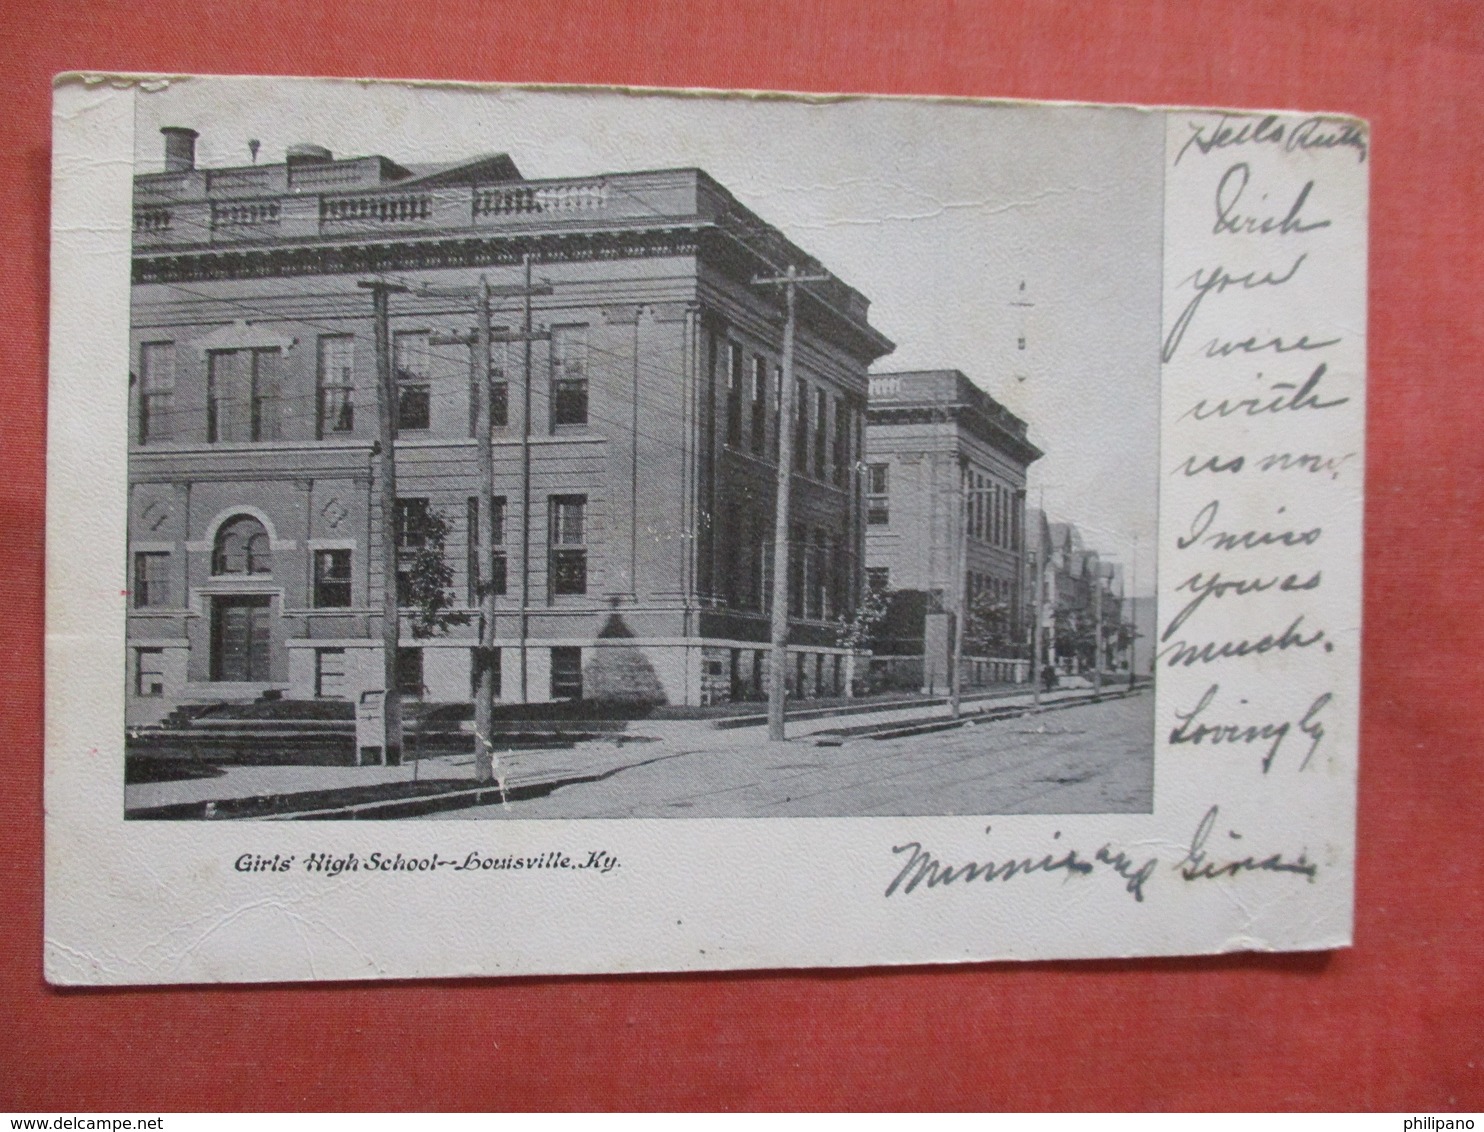 Hello Ruth,
Wish
you
were
with
us now.
I miss
you so
much.
Lovingly
Minnie and Gina
Girls' High School–Louisville, Ky.
delcampe.net
philipano